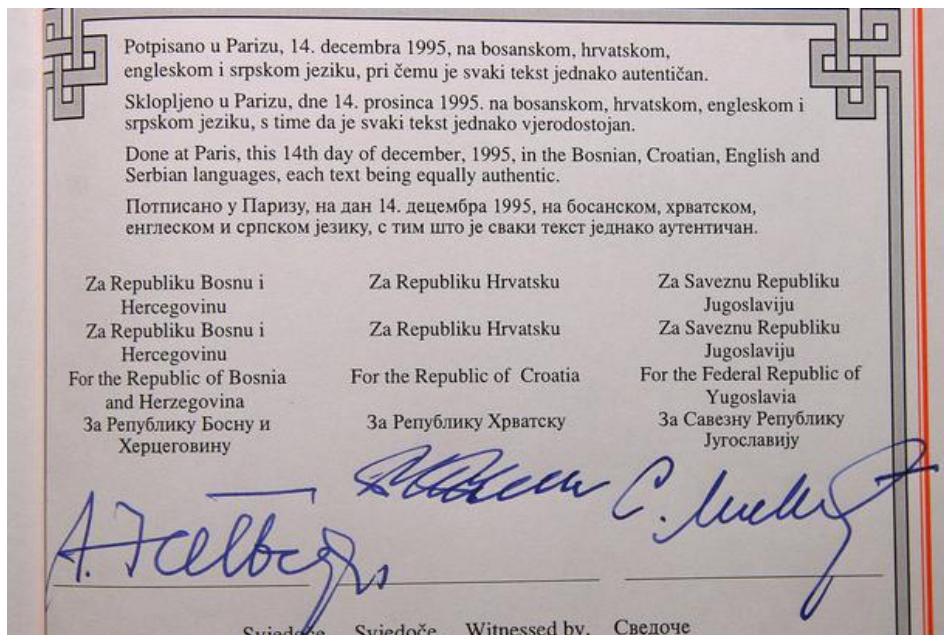 Potpisano u Parizu, 14. decembra 1995, na bosanskom, hrvatskom,
engleskom i srpskom jeziku, pri čemu je svaki tekst jednako autentičan.
Sklopljeno u Parizu, dne 14. prosinca 1995. na bosanskom, hrvatskom, engleskom i
srpskom jeziku, s time da je svaki tekst jednako vjerodostojan.
Done at Paris, this 14th day of december, 1995, in the Bosnian, Croatian, English and
Serbian languages, each text being equally authentic.
Потписано у Паризу, на дан 14. децембра 1995, на босанском, хрватском,
енглеском и српском језику, с тим што је сваки текст једнако аутентичан.
Za Republiku Bosnu i
Hercegovinu
Za Republiku Bosnu i
Hercegovinu
For the Republic of Bosnia
and Herzegovina
За Републику Босну и
Херцеговину
Za Republiku Hrvatsku
Za Republiku Hrvatsku
For the Republic of Croatia
За Републику Хрватску
Za Saveznu Republiku
Jugoslaviju
Za Saveznu Republiku
Jugoslaviju
For the Federal Republic of
Yugoslavia
За Савезну Републику
Југославију
Svjedoče Svjedoče Witnessed by, Сведоче